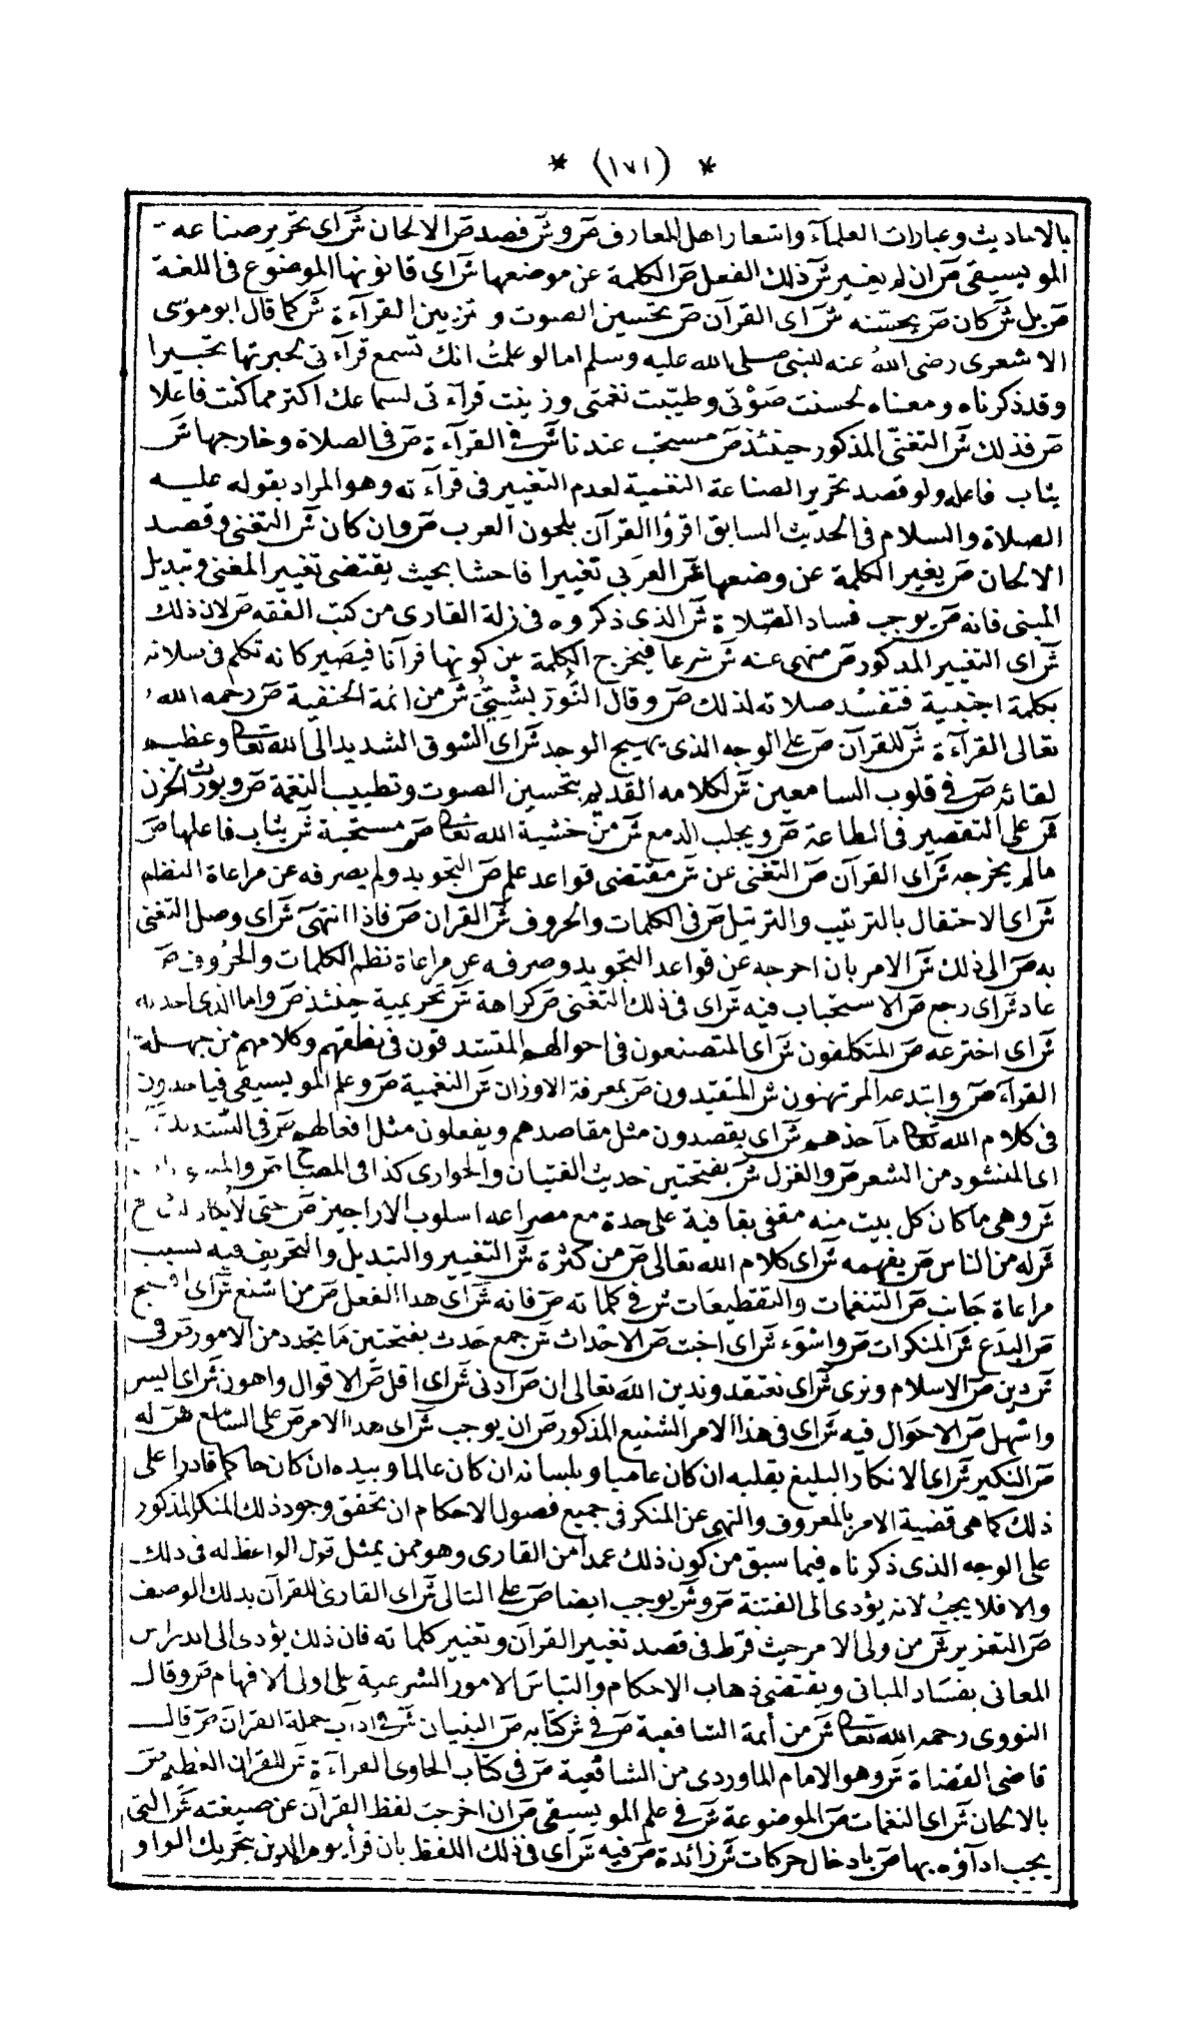 * (١٧١) *
بالاحاديث وعبارات العلمآء واشعار اهل المعارف ص و ش قصد ص الالحان ش اى تحرير صناعة
المويسيقى ص ان لم يغير ش ذلك الفعل ص الكلمة عن موضعها ش اى قانونها الموضوع فى اللغة
ص بل ش كان ص يحسنه ش اى القرآن ص بتحسين الصوت و تزيين القرآءة ش كما قال ابوموسى
الاشعرى رضى الله عنه للنبى صلى الله عليه وسلم امالو علمت انك تسمع قرآءتى لحبرتها تحبيرا
وقد ذكرناه ومعناه لحسنت صوتى وطيبت نغمتى وزينت قرآءتى لسماعك اكثر مما كنت فاعلا
ص فذلك ش التغنى المذكور حينئذ ص مستحب عندنا ش فى القرآءة ص فى الصلاة وخارجها ش
يثاب فاعله ولو قصد تحرير الصناعة النغمية لعدم التغيير فى قرآءته وهو المراد بقوله عليه
الصلاة والسلام فى الحديث السابق اقرؤا القرآن بلحون العرب ص وان كان ش التغنى وقصد
الالحان ص يغير الكلمة عن وضعها ش العربى تغييرا فاحشا بحيث يقتضى تغيير المعنى وتبديل
المبنى فانه ص يوجب فساد الصلاة ش الذى ذكروه فى زلة القارى من كتب الفقه ص لان ذلك
ش اى التغيير المذكور ص منهى عنه ش شرعا فيخرج الكلمة عن كونها قرآنا فيصير كانه تكلم فى صلاته
بكلمة اجنبية فتفسد صلاته لذلك ص وقال التوربشتى ش من ائمة الحنفية ص رحمه الله
تعالى القرآءة ش للقرآن ص على الوجه الذى يهيج الوجد ش اى الشوق الشديد الى الله تعالى وعظيم
لقائه ص فى قلوب السامعين ش لكلامه القديم بتحسين الصوت وتطييب النغمة ص ويورث الحزن
ش على التقصير فى الطاعة ص ويجلب الدمع ش من خشية الله تعالى ص مستحبة ش يثاب فاعلها ص
مالم يخرجه ش اى القرآن ص التغنى عن ش مقتضى قواعد علم ص التجويد ولم يصرفه عن مراعاة النظم
ش اى الاحتفال بالترتيب والترتيل ص فى الكلمات والحروف ش القران ص فاذا انتهى ش اى وصل التغنى
به ص الى ذلك ش الامر بان اخرجه عن قواعد التجويد وصرفه عن مراعاة نظم الكلمات والحروف ص
عاد ش اى رجع ص الاستحباب فيه ش اى فى ذلك التغنى ص كراهة ش تحريمية حينئذ ص واما الذى احدثه
ش اى اخترعه ص المتكلفون ش اى المتصنعون فى احوالهم المتشدقون فى نطقهم وكلامهم من جهلة
القرآء ص وابتدعه المرتهنون ش المتقيدون ص بمعرفة الاوزان ش النغمية ص وعلم المويسيقى فياخذون
فى كلام الله تعالى مآخذهم ش اى يقصدون مثل مقاصدهم ويفعلون مثل افعالهم ص فى
اى المنشود من الشعر ص والغزل ش بفتحتين حديث الفتيان والجوارى كذا فى المصباح ص
ش وهى ما كان كل بيت منه مقفى بقافية على حدة مع مصراعه اسلوب الاراجيز ص حتى لايكاد
ش له من الناس ص يفهمه ش اى كلام الله تعالى ص من كثرة ش التغيير والتبديل والتحريف فيه بسبب
مراعاة جانب ص التنغمات والتقطيعات ش فى كلماته ص فانه ش اى هذا الفعل ص من اشنع ش اى اقبح
ص البدع ش المنكرات ص واسوء ش اى اخبث ص الاحداث ش جمع حدث بفتحتين ما يتجدد من الامور ص فى
ش دين ص الاسلام ونرى ش اى نعتقد وندين الله تعالى ان ص ادنى ش اى اقل ص الاقوال واهون ش اى ايسر
واسهل ص الاحوال فيه ش اى فى هذا الامر الشنيع المذكور ص ان يوجب ش اى هذا الامر ص على السامع ش له
ص النكير ش اى الانكار البليغ بقلبه ان كان عاميا وبلسانه ان كان عالما وبيده ان كان حاكما قادرا على
ذلك كما هى قضية الامر بالمعروف والنهى عن المنكر فى جميع فصول الاحكام ان تحقق وجود ذلك المنكر المذكور
على الوجه الذى ذكرناه فيما سبق من كون ذلك عمدا من القارى وهو ممن يمثل قول الواعظ له فى ذلك
والا فلا يجب لانه يؤدى الى الفتنة ص و ش يوجب ايضا ص على التالى ش اى القارئ للقرآن بذلك الوصف
ص التعزير ش من ولى الامر حيث فرط فى قصد تغيير القرآن وتغيير كلماته فان ذلك يؤدى الى اندراس
المعانى بفساد المبانى ويقتضى ذهاب الاحكام والتباس الامور الشرعية على اولى الافهام ص وقال
النووى رحمه الله تعالى ش من أئمة الشافعية ص فى ش كتابه ص التبيان ش فى اداب حملة القرآن ص قال
قاضى القضاة ش وهو الامام الماوردى من الشافعية ص فى كتاب الحاوى القرآءة ش للقران العظيم ص
بالالحان ش اى النغمات ص الموضوعة ش فى علم المويسيقى ص ان اخرجت لفظ القرآن عن صيغته ش التى
يجب ادآؤه بها ص بادخال حركات ش زائدة ص فيه ش اى فى ذلك اللفظ بان قرأ يوم الدين بتحريك الواو